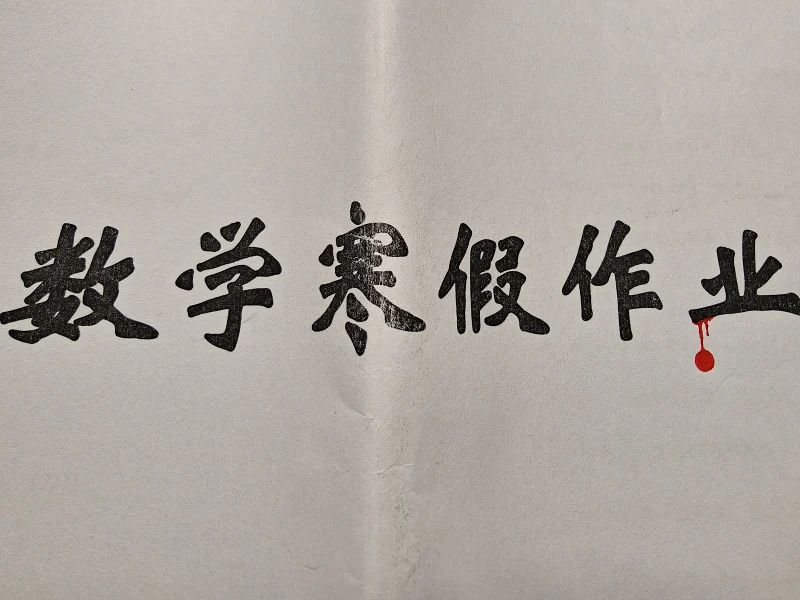 数学寒假作业